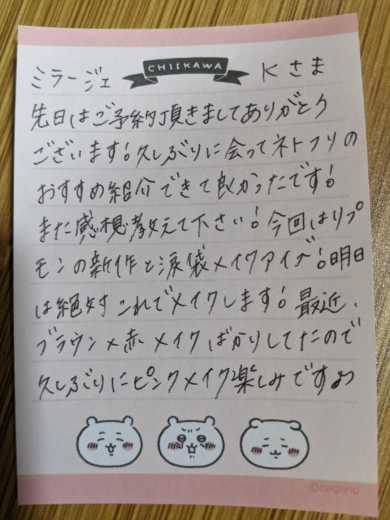 ミラージェ CHIIKAWA Kさま
先日はご予約頂きましてありがとう
ございます!久しぶりに会ってネトフリの
おすすめ紹介できて良かったです!
また感想教えて下さい!今回はリプ
モンの新作と涙袋メイクアイズ!明日
は絶対これでメイクします!最近、
ブラウン×赤メイクばかりしてたので
久しぶりにピンクメイク楽しみですよ
©nagano